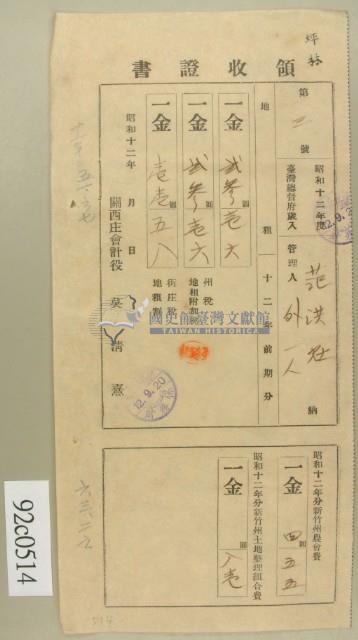 坪林
領收證書
第 二 號
昭和十二年度
臺灣總督府歲入
管理人
范洪
外一人
納
地租 十二年前期分
一金 貳參壱六
圓
一金 貳參壱六
圓
州稅
地租附加稅
一金 壱壱五八
圓
街庄稅
地租割
昭和十二年 月 日
關西庄會計役 吳清熹
12.9.20
國史館臺灣文獻館
TAIWAN HISTORICA
昭和十二年分新竹州農會費
一金 四五五
圓
昭和十二年分新竹州土地整理組合費
一金 八壱
圓
92c0514
514